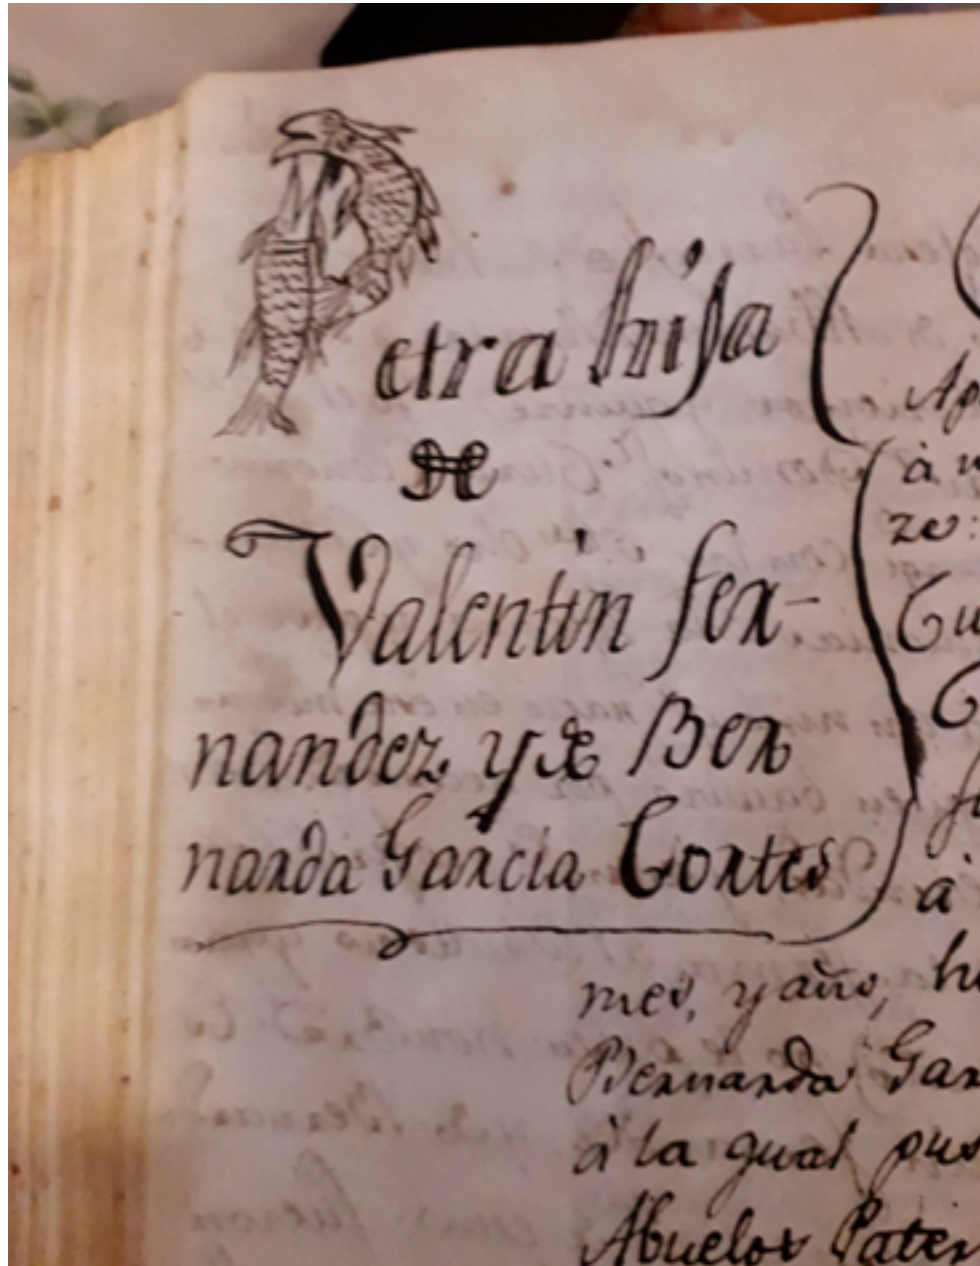 Petra hija
de
Valentin fer-
nandez y de Ber
narda Garcia Cortes
à
ze:
à
mes, y año,
Bernarda Gar
à la qual pus
Abuelos Pater